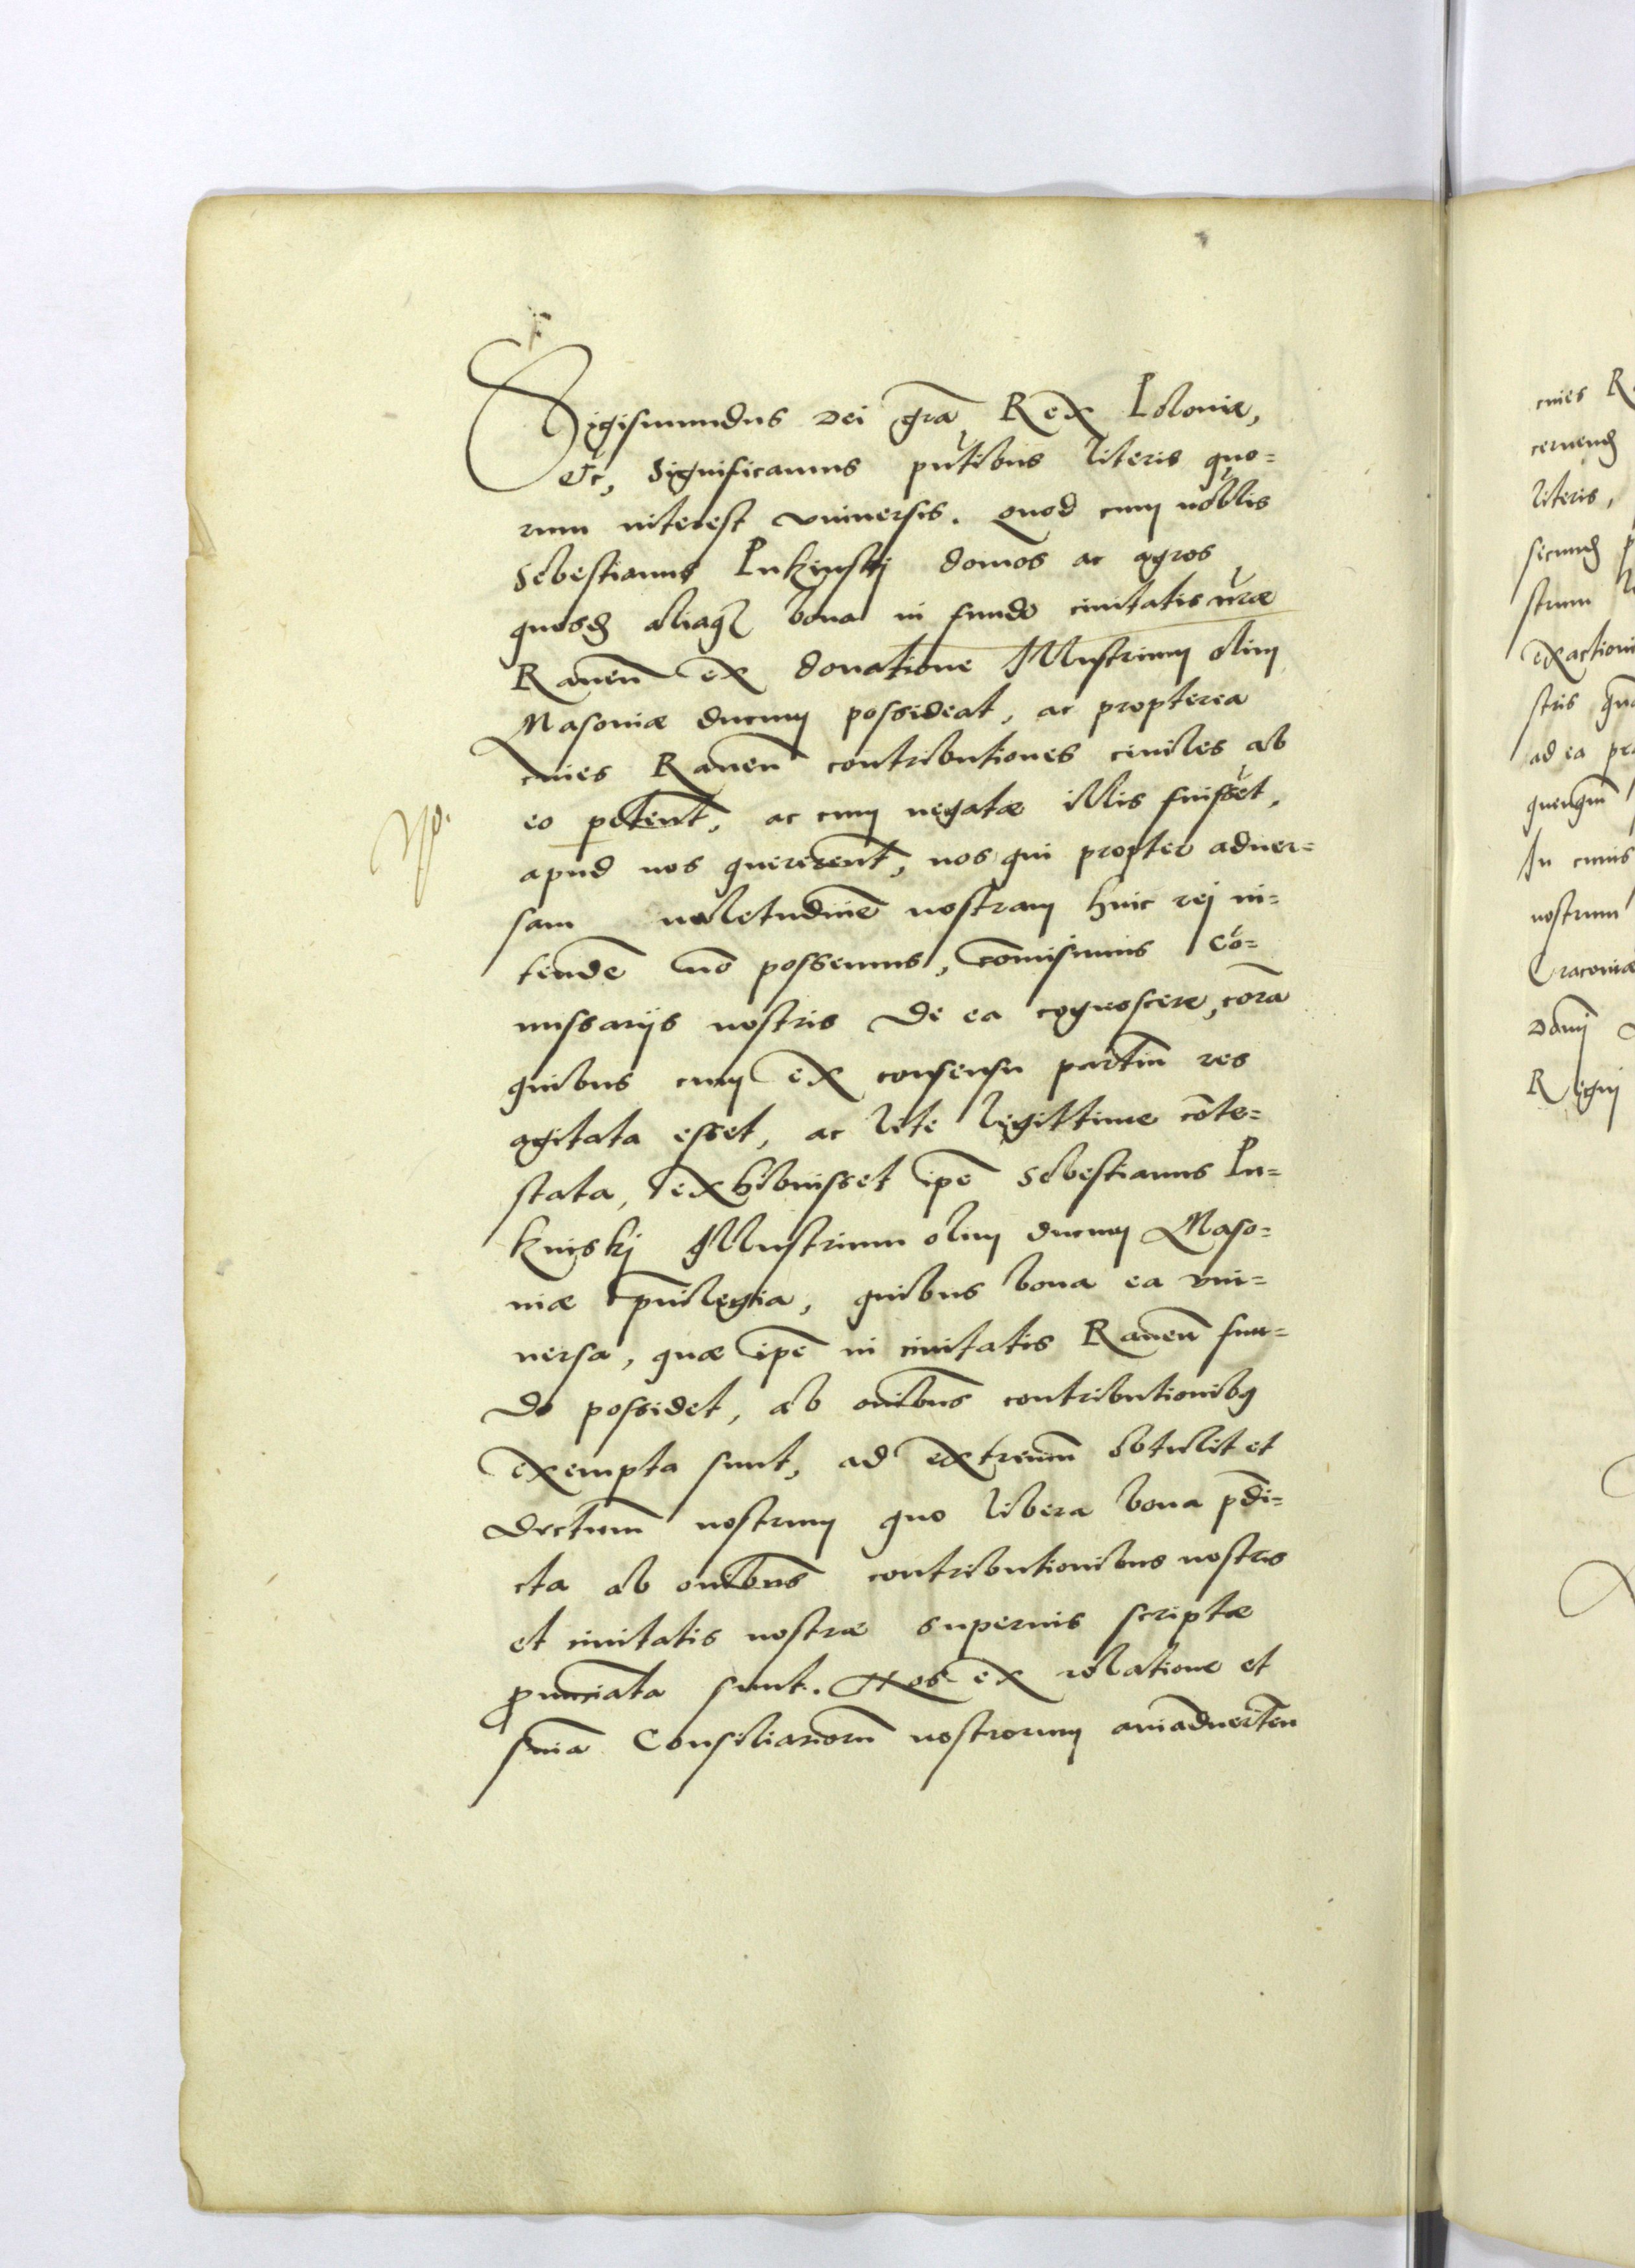 Sigismundus Dei gra Rex Poloniæ,
etc, Significamus pntibus literis quo=
rum interest vniversis. Quod cum nobilis
Sebestianus Lukinskij domos ac agros
quosd aliaq bona in fundo ciuitatis nræ
Raven ex donatione Illustrium olim
Masoviæ ducum possideat, ac propterea
ciues Raven contributiones ciuiles ab
eo petent, ac cum negatæ illis fuisset,
apud nos quererent, nos qui propter aduer=
sam ualetudine nostram huic rej in=
tende no possemus, comisimus Co=
missarijs nostris de ea cognoscere, cora
quibus cum ex consensu partiu res
agitata esset, ac lite legittime conte=
stata, exhibuisset ipe Sebestianus Lu=
kinskj Illustrium olim ducum Maso=
uiæ priuilegia, quibus bona ea vni=
uersa, quæ ipe in ciuitatis Raven fun=
do possidet, ab omibus contributionibq
exempta sunt, ad extremu obtulit et
dectum nostrum quo libera bona pdi=
cta ab omibus contributionibus nostris
et ciuitatis nostræ superius scriptæ
pnunciata sunt. Nos ex relatione et
snia Consiliarioru nostrorum aiaduerten
ciues
cernend
literis,
secund
strum
exactioni
stris
ad ea
In cuius
nostrum
Cracouiæ
Danj
Regnj